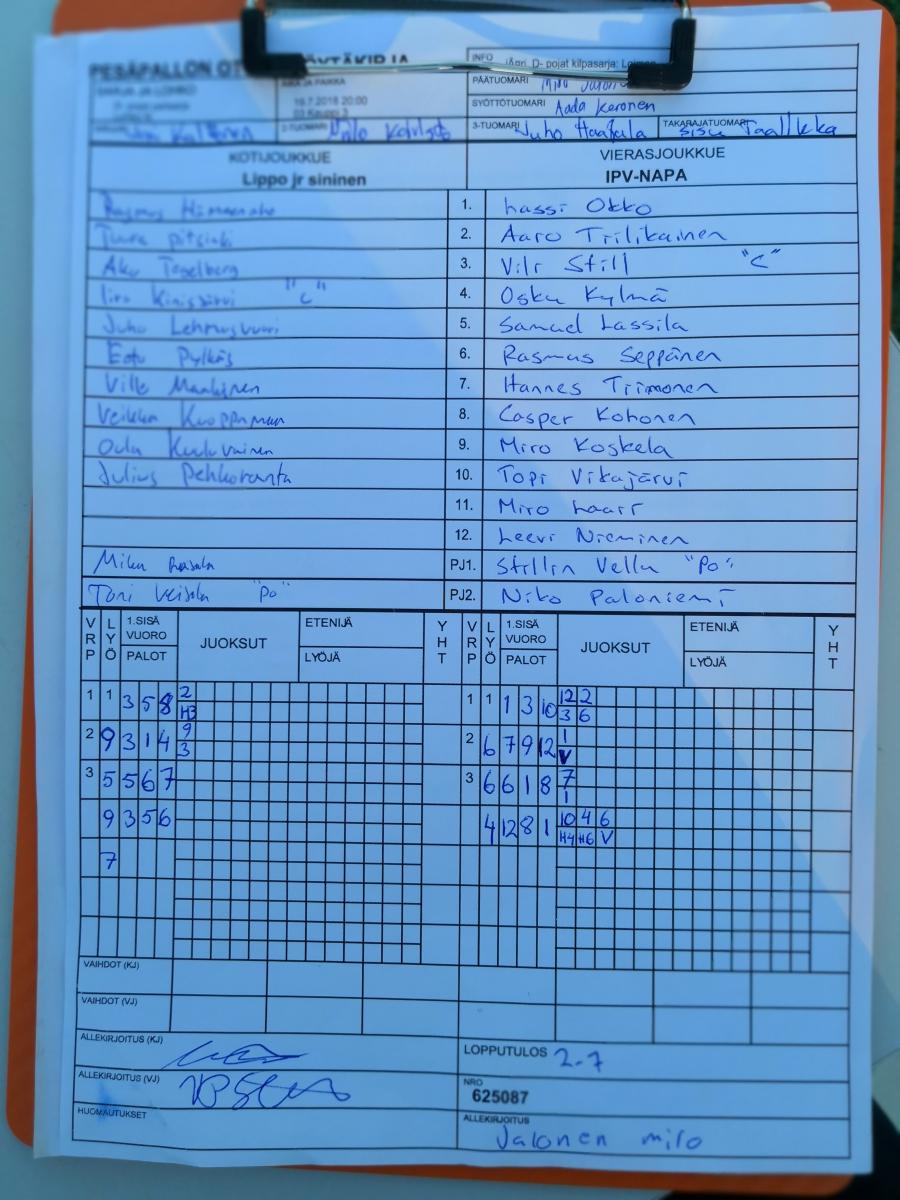 PESÄPALLON OTTELUPÖYTÄKIRJA
SARJA JA LOHKO
AIKA JA PAIKKA
19.7.2018 20:00
03 Kauppi 3
INFO
D- pojat kilpasarja:
PÄÄTUOMARI Miro Jalonen
SYÖTTÖTUOMARI Aada Keronen
2-TUOMARI
3-TUOMARI Juho Haapala
TAKARAJATUOMARI Sisu Taalikka
KOTIJOUKKUE
Lippo jr sininen
VIERASJOUKKUE
IPV-NAPA
Rasmus 1. Lassi Okko
2. Aaro Trilikainen
Aku Tegelberg 3. Vili Still "C"
Iiro Kinisjärvi "C" 4. Osku Kylmä
Juho Lehmusvuori 5. Samuel Lassila
Eetu Pylkäs 6. Rasmus Seppänen
Ville Manninen 7. Hannes Tiimonen
Veikka Kuoppamaa 8. Casper Kohonen
Oula Kuuluvainen 9. Miro Koskela
Julius Pehkoranta 10. Topi Vikajärvi
11. Miro Laari
12. Leevi Nieminen
Mika PJ1. Stillin Vellu "Po"
Toni Veijola "Po" PJ2. Niko Paloniemi
VRP LYÖ 1.SISÄ VUORO PALOT JUOKSUT ETENIJÄ LYÖJÄ YHT VRP LYÖ 1.SISÄ VUORO PALOT JUOKSUT ETENIJÄ LYÖJÄ YHT
1 1 3 5 8 2 1 1 1 3 10 12 2
H3 3 6
2 9 3 1 4 9 2 6 7 9 12 1
3 V
3 5 5 6 7 3 6 6 1 8 7
1
9 3 5 6 4 12 8 1 10 4 6
H4 H6 V
7
VAIHDOT (KJ)
VAIHDOT (VJ)
ALLEKIRJOITUS (KJ)
LOPPUTULOS 2-7
ALLEKIRJOITUS (VJ)
NRO
625087
HUOMAUTUKSET
ALLEKIRJOITUS
Jalonen miro